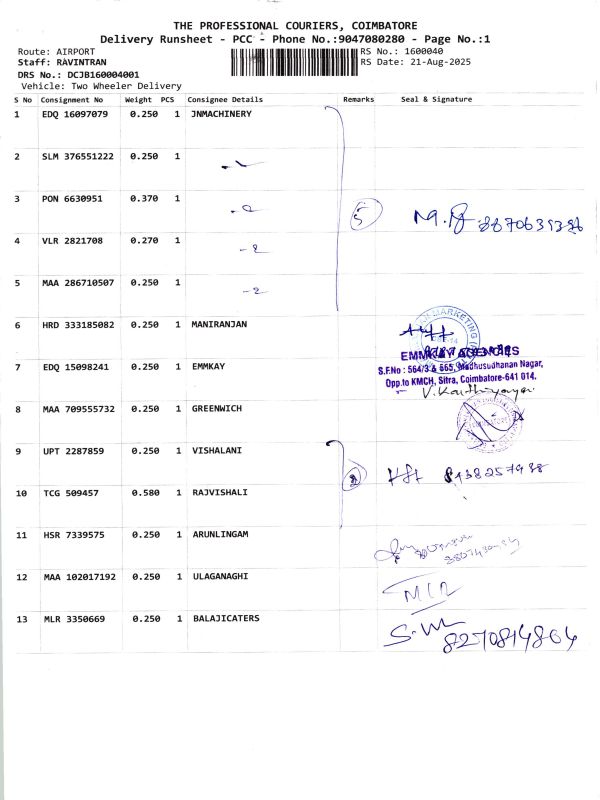 THE PROFESSIONAL COURIERS, COIMBATORE
Delivery Runsheet - PCC - Phone No.:9047080280 - Page No.:1
Route: AIRPORT RS No.: 1600040
Staff: RAVINTRAN RS Date: 21-Aug-2025
DRS No.: DCJB160004001
Vehicle: Two Wheeler Delivery
S No Consignment No Weight PCS Consignee Details Remarks Seal & Signature
1 EDQ 16097079 0.250 1 JNMACHINERY
2 SLM 376551222 0.250 1
3 PON 6630951 0.370 1
5
4 VLR 2821708 0.270 1
5 MAA 286710507 0.250 1
6 HRD 333185082 0.250 1 MANIRANJAN
MARKETING
7 EDQ 15098241 0.250 1 EMMKAY
EMMKAY AGENCIES
S.F.No : 564/3 & 665, Madhusudhanan Nagar,
Opp.to KMCH, Sitra, Coimbatore-641 014.
8 MAA 709555732 0.250 1 GREENWICH
9 UPT 2287859 0.250 1 VISHALANI
10 TCG 509457 0.580 1 RAJVISHALI
11 HSR 7339575 0.250 1 ARUNLINGAM
12 MAA 102017192 0.250 1 ULAGANAGHI
13 MLR 3350669 0.250 1 BALAJICATERS
8270814804